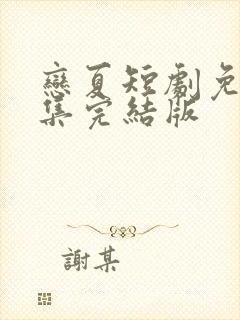 戀夏短劇免
集完結版
謝某